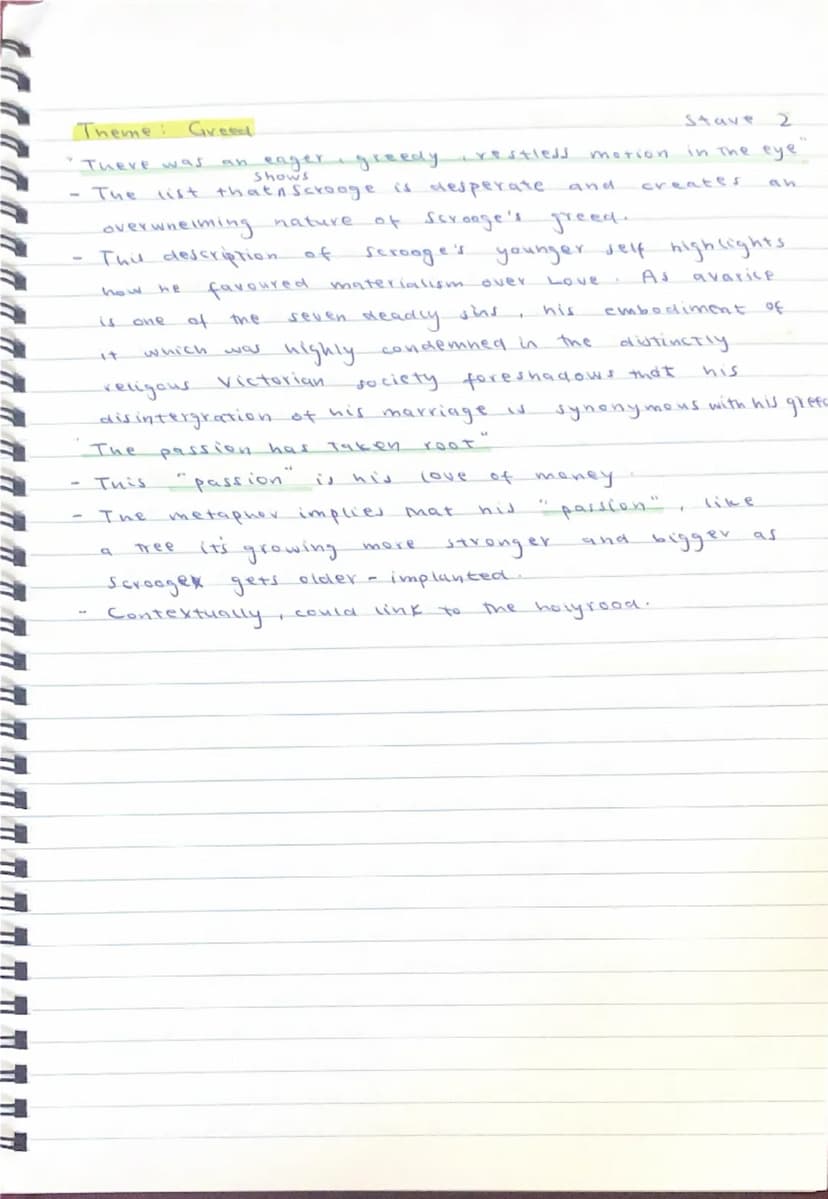 Theme: Greed Stave 2
"There was an eager, greedy, restless motion in the eye"
shows
- The list that ∧ Scrooge is desperate and creates an
overwhelming nature of Scrooge's greed.
- This description of Scrooge's younger self highlights
how he favoured materialism over Love. As avarice
is one of the seven deadly sins, his embodiment of
it which was highly condemned in the distinctly
religous Victorian society foreshadows that his
disintergration of his marriage is synonymous with his greed
"The passion has taken root"
- This "passion" is his love of money.
- The metapher implies that his "passion", like
a tree it's growing more stronger and bigger as
Scrooge gets older - implanted.
- Contextually, could link to the holyrood.